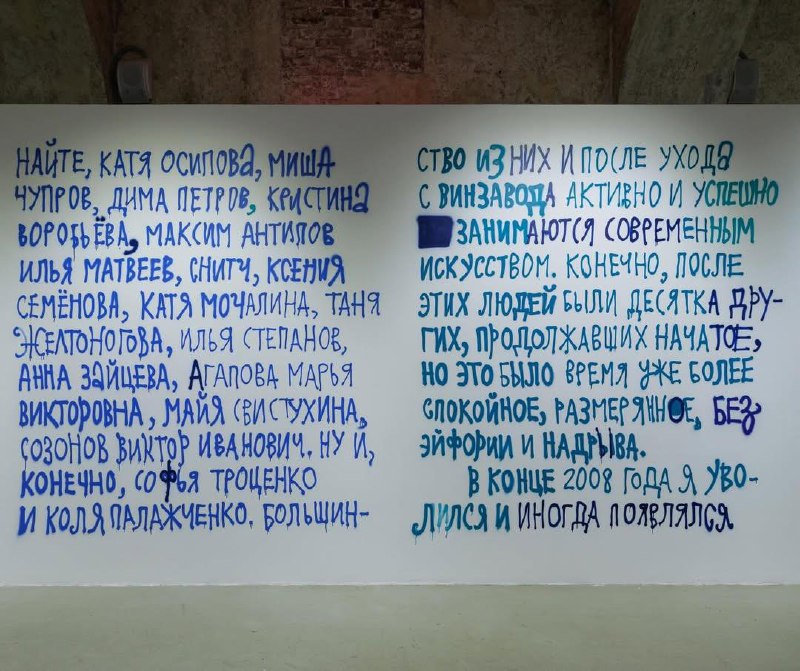 НАЙТЕ, КАТЯ ОСИПОВА, МИША
ЧУПРОВ, ДИМА ПЕТРОВ, КРИСТИНА
ВОРОБЬЁВА, МАКСИМ АНТИПОВ
ИЛЬЯ МАТВЕЕВ, СНИТЧ, КСЕНИЯ
СЕМЁНОВА, КАТЯ МОЧАЛИНА, ТАНЯ
ЖЕЛТОНОГОВА, ИЛЬЯ СТЕПАНОВ,
АННА ЗАЙЦЕВА, АГАПОВА МАРЬЯ
ВИКТОРОВНА, МАЙЯ СВИСТУХИНА,
СОЗОНОВ ВИКТОР ИВАНОВИЧ. НУ И,
КОНЕЧНО, СОФЬЯ ТРОЦЕНКО
И КОЛЯ ПАЛАЖЧЕНКО. БОЛЬШИН-
СТВО ИЗ НИХ И ПОСЛЕ УХОДА
С ВИНЗАВОДА АКТИВНО И УСПЕШНО
ЗАНИМАЮТСЯ СОВРЕМЕННЫМ
ИСКУССТВОМ. КОНЕЧНО, ПОСЛЕ
ЭТИХ ЛЮДЕЙ БЫЛИ ДЕСЯТКА ДРУ-
ГИХ, ПРОДОЛЖАВШИХ НАЧАТОЕ,
НО ЭТО БЫЛО ВРЕМЯ УЖЕ БОЛЕЕ
СПОКОЙНОЕ, РАЗМЕРЯННОЕ, БЕЗ
ЭЙФОРИИ И НАДРЫВА.
В КОНЦЕ 2008 ГОДА Я УВО-
ЛИЛСЯ И ИНОГДА ПОЯВЛЯЛСЯ